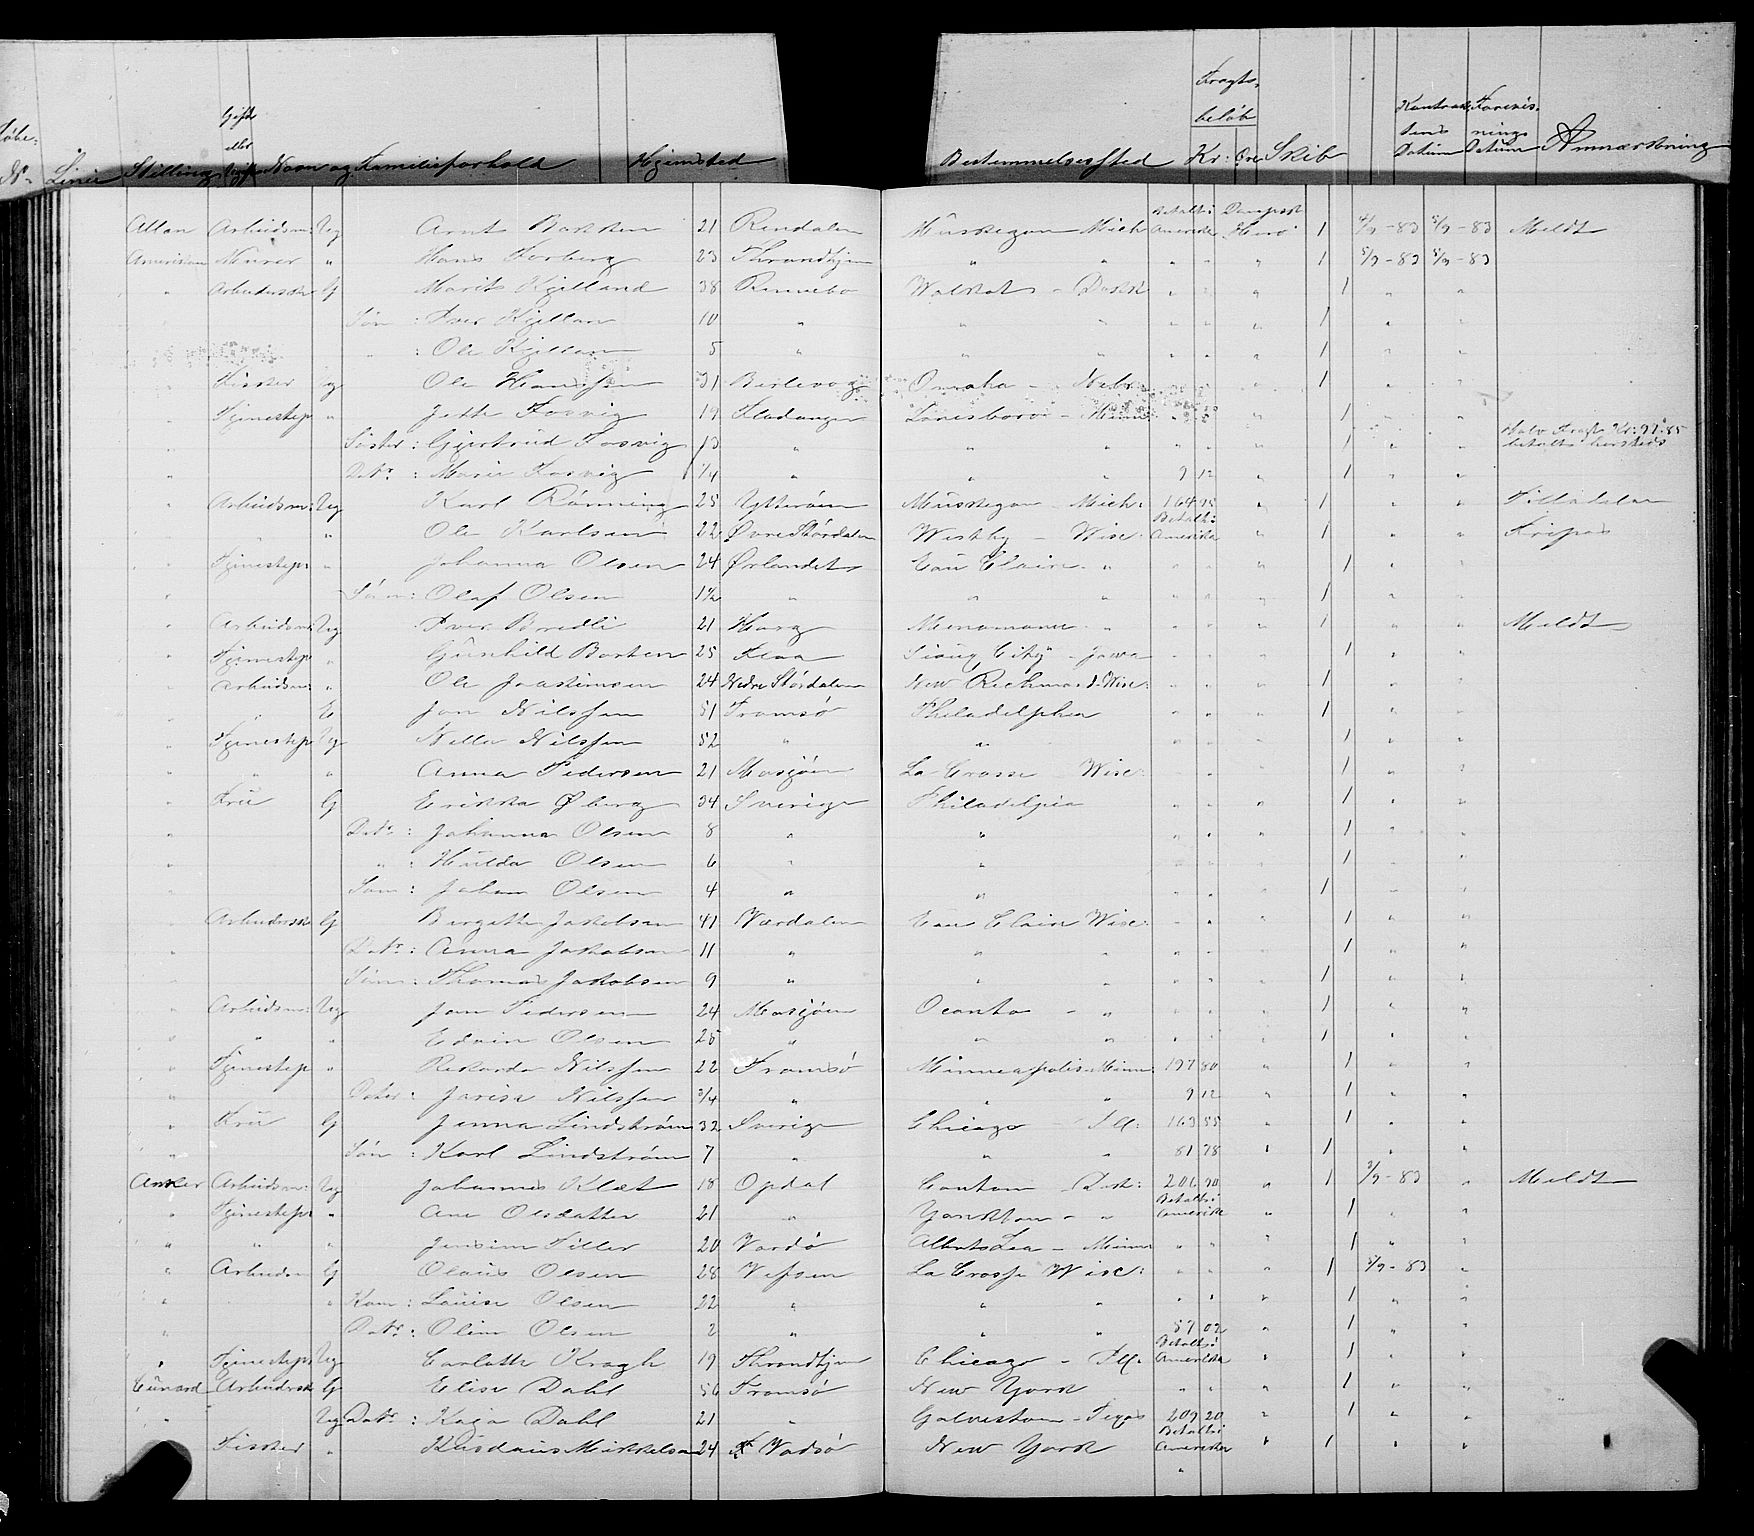 Løbe- Gift Fragt- Kontrak- Forevis-
eller beløb tens nings
No Linie Stilling Ugift Navn og Familieforhold Hjemsted Bestemmelsessted Kr: Øre Skib Datum Datum Anmærkning
Allan Arbeidsm: Ug Arnt Bakken 21 Rendalen Muskegon Mich Betalt i Amerika Dampsk Hero 1 4/9-83 5/9-83 Meldt
American Murer " Hans Forberg 23 Throndhjem " " " " " 1 5/9-83 5/9-83
" Arbeidersk G Marit Kjelland 38 Rennebo Dak " " " 1 " "
Søn: Iver Kjellan 10 " " " " " " 1 " "
" : Ole Kjellan 5 " " " " " " 1 " "
" Fisker Ug Ole Hanssen 31 Berlevog Omaha - Nebr " " " 1 " "
" Tjenestep " Jethe Fosvig 19 Lanesboro - Minn " " " 1 " "
" Søster: Gjertrud Fosvig 13 " " " " " " 1 " " Halv Fragt Kr: 97.85 betalt hersteds
" Dat: Marie Fosvig 1/4 " " " 9 12 1 " "
" Arbeidsm: Ug Karl Rønning 25 Ytterøen Muskegon - Mich: 164 95 " 1 " "
" " Ole Karlsen 22 Øvre Størdalen Westby - Wisc: Betalt i Amerika " 1 " "
" Tjenestep " Johanna Olsen 24 Ørlandet Eau Claire " " " " 1 " "
" Søn: Olaf Olsen 1½ " " " " " " 1 " "
" Arbeidsm: Ug Iver Bredli 21 Menomonie " " " " 1 " " Meldt
" Tjenestep " Gunhild Borten 25 Flaa Sioux City - Iowa " " " 1 " "
" Arbeidsm: " Ole Joakimsen 24 Nedre Størdalen New Richmond - Wisc: " " " 1 " "
" " E Jon Nilssen 51 Tromsø Philadelphia " " " 1 " "
" Tjenestep Ug Nella Nilssen 52 " " " " 1 " "
" " " Anna Pedersen 21 Mosjøen La Crosse Wisc: " " " 1 " "
" Fru G Erikka Øberg 34 Sverige Philadelpia " " " 1 " "
" Dat: Johanna Olsen 8 " " " " " 1 " "
" " : Hulda Olsen 6 " " 1 " "
" Søn: Johan Olsen 4 " " " " " 1 " "
" Arbeidersk G Birgitte Jakobsen 41 Værdalen Eau Claire Wisc: " " " 1 " "
" Dat: Anna Jakobsen 11 " " " 1 " "
" Søn: Thomas Jakobsen 9 " " " 1 " "
" Arbeidsm: Ug Jon Pedersen 24 Mosjøen Oconto - " " " " 1 " "
" " " Edvin Olsen 25 " " " " " " 1 " "
" Tjenestep " Rikarda Nilssen 22 Tromsø Minneapolis - Minn: 197 80 " 1 " "
" Dater: Nilssen 3/4 " " " 9 12 " 1 " "
" Fru G Jenna Lindstrøm 32 Sverige Chicago - Ill: 163 55 " 1 " "
" Søn: Karl Lindstrøm 7 " " " 81 78 " 1 " "
Anker Arbeidsm: Ug Johannes Klæt 18 Opdal Canton - Dak: 206 90 " 1 3/9-83 " Meldt
" Tjenestep " Ane Olsdatter 21 " Yankton - " Betalt i Amerika " 1 " "
" " " Jensine Tiller 20 Vardø Alberts Lea - Minn " " " 1 " "
" Arbeidsm G Olaus Olsen 28 Vefsen La Crosse Wisc: " " 1 5/9-83 "
" " Kone: Louise Olsen 22 " " " " " " 1 " "
" Dat: Oline Olsen 2 " " " 57 02 " 1 " "
" Tjenestep Ug Carlotte Kragh 19 Throndhjem Chicago - Ill: Betalt i Amerika " 1 " "
Cunard Arbeidersk G Elise Dahl 56 Tromsø New York " " " 1 " "
" Ug Dat: Kaja Dahl 21 " Galveston - Texas 209 20 " 1 " "
Fisker " Mikkelsen 24 Vadsø New York Betalt i Amerika " 1 " "
"